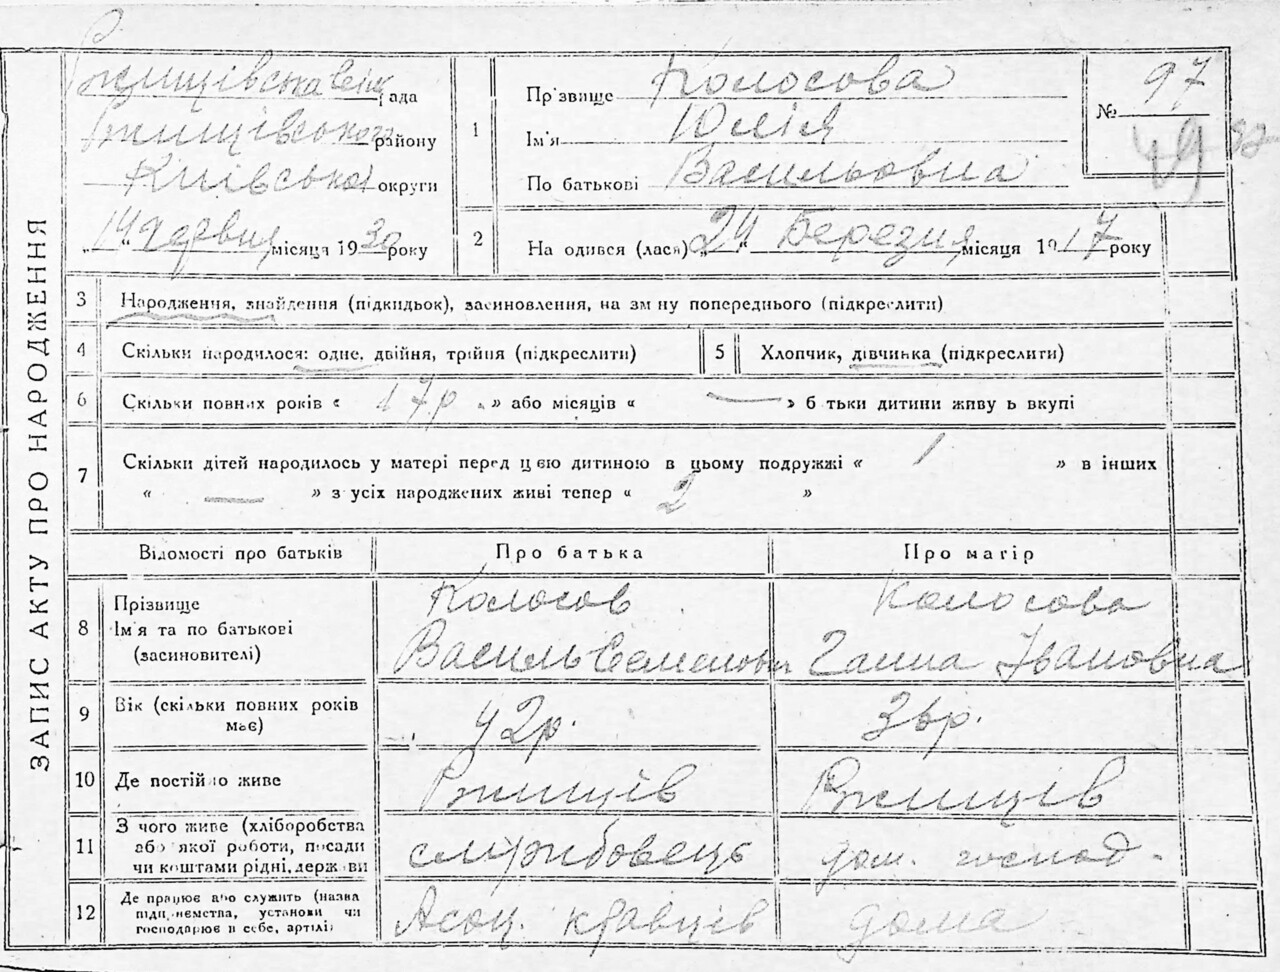 ЗАПИС АКТУ ПРО НАРОДЖЕННЯ
Ржищівська рада
Ржищівського району
Київської округи
„14“ червня місяця 1930 року
1
Пр'звище Колосова
Ім'я Юлія
По батькові Васильовна
№ 97
49
2
На одився (лася) „24“ Березня місяця 1917 року
3 Народження, знайдення (підкидьок), засиновлення, на зм ну попереднього (підкреслити)
4 Скільки народилося: одне, двійня, трійня (підкреслити)
5 Хлопчик, дівчинка (підкреслити)
6 Скільки повних років « 17р. » або місяців « — » б тьки дитини живу ь вкупі
7 Скільки дітей народилось у матері перед цією дитиною в цьому подружжі « 1 » в інших
« — » з усіх народжених живі тепер « 2 »
Відомості про батьків Про батька Про матір
8 Прізвище
Ім'я та по батькові
(засиновителі)
Колосов
Василь Семенович
Колосова
Ганна Івановна
9 Вік (скільки повних років
має)
42р.
36р.
10 Де постійно живе Ржищів Ржищів
11 З чого живе (хліборобства
або якої роботи, посади
чи коштами рідні, держави
службовець
дом. господ.
12 Де працює або служить (назва
підприємства, установи чи
господарює в себе, артілі)
Асоц. кравців
дома